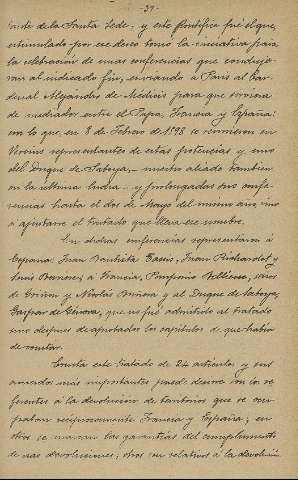 -27-
de la Santa Sede: y este Pontífice fué el que,
estimulado por ese deseo tomó la iniciativa para
la celebracion de unas conferencias que conduje-
ran al indicado fin, enviando á París al Car-
denal Alejandro de Médicis para que sirviera
de mediador entre el Papa, Francia y España:
con lo que, en 8 de Febrero de 1598 se reunieron en
Vervins representantes de estas potencias y uno
del Duque de Saboya, nuestro aliado tambien
en la última lucha - y prolongadas sus confe-
rencias hasta el dos de Mayo del mismo año, vino
á ajustarse el tratado que lleva ese nombre.
En dichas conferencias representaron á
España: Juan Bautista Tassis, Juan Richardot y
Luis Verreicx; á Francia, Pomponio Bellievre, señor
de Grinon y Nicolás Brûlart y al Duque de Saboya,
Gaspar de Génova, que no fué admitido al tratado
sino despues de aprobados los capítulos de que habia
de constar.
Consta este tratado de 24 artículos y sus
acuerdos más importantes puede decirse son los re-
ferentes á la devolucion de territorios que se ocu-
paban recíprocamente Francia y España; en
otros se marcan las garantías del cumplimiento
de esas devoluciones; otros son relativos á la devolucion